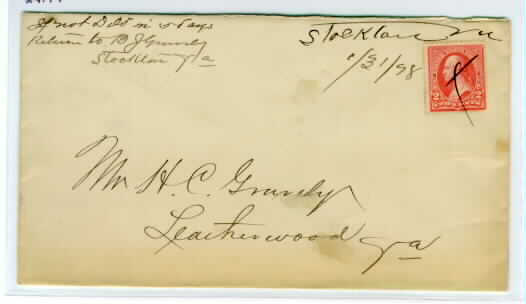 If not Deld in 5 days
Return to B J Gravely
Stockton Va
Stockton Va
1/31/98
2 2
Mr H. C. Gravely
Leatherwood
Va